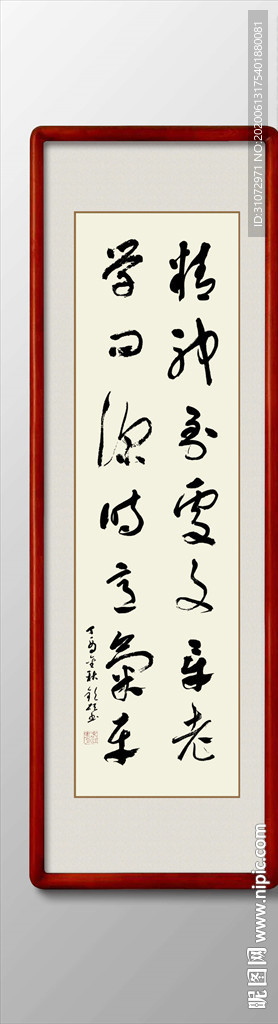 精神到處文章老
学问深时意氣平
丁酉金秋
ID:31072971 NO:20200613175401880081
昵图网 www.nipic.com